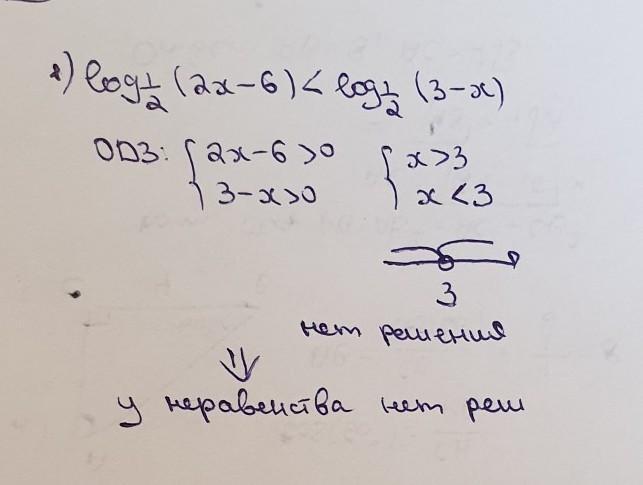 1) log½ (2x-6) < log½ (3-x)
ОДЗ: { 2x-6>0 { x>3
3-x>0 x<3
3
нет решения
⇓
у неравенства нет реш